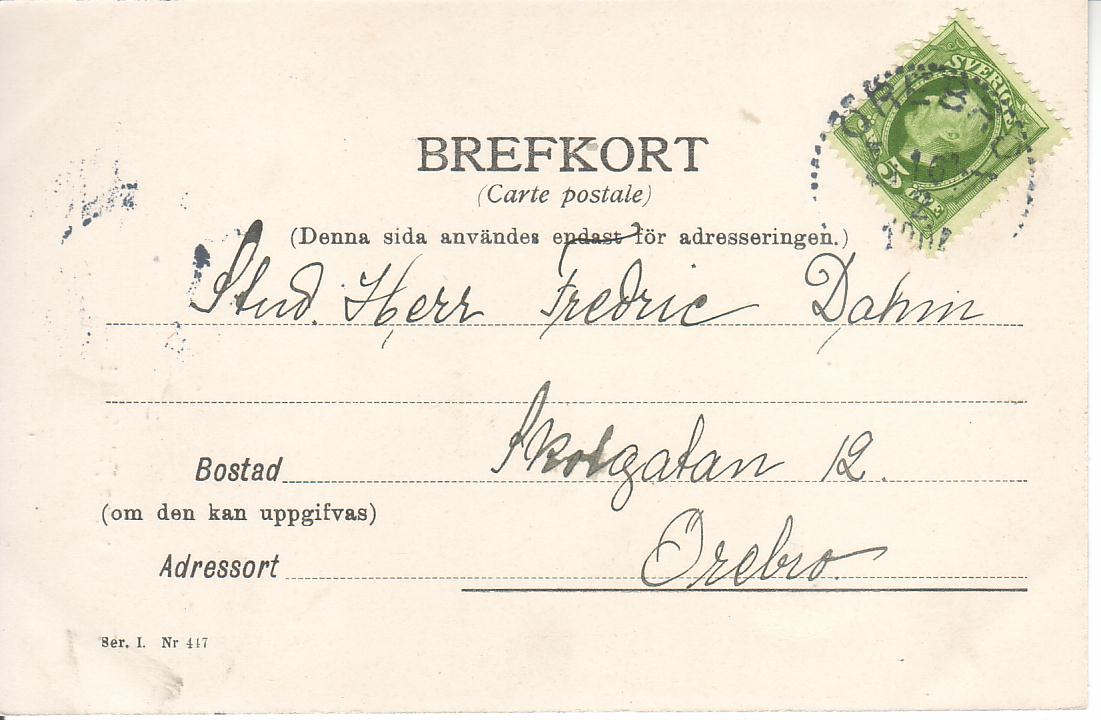 SVERIGE
5 ÖRE
ÖREBRO
BREFKORT
(Carte postale)
(Denna sida användes endast för adresseringen.)
Stud. Herr Fredric Dahm
Bostad Skolgatan 12.
(om den kan uppgifvas)
Adressort Örebro.
Ser. I. Nr 447